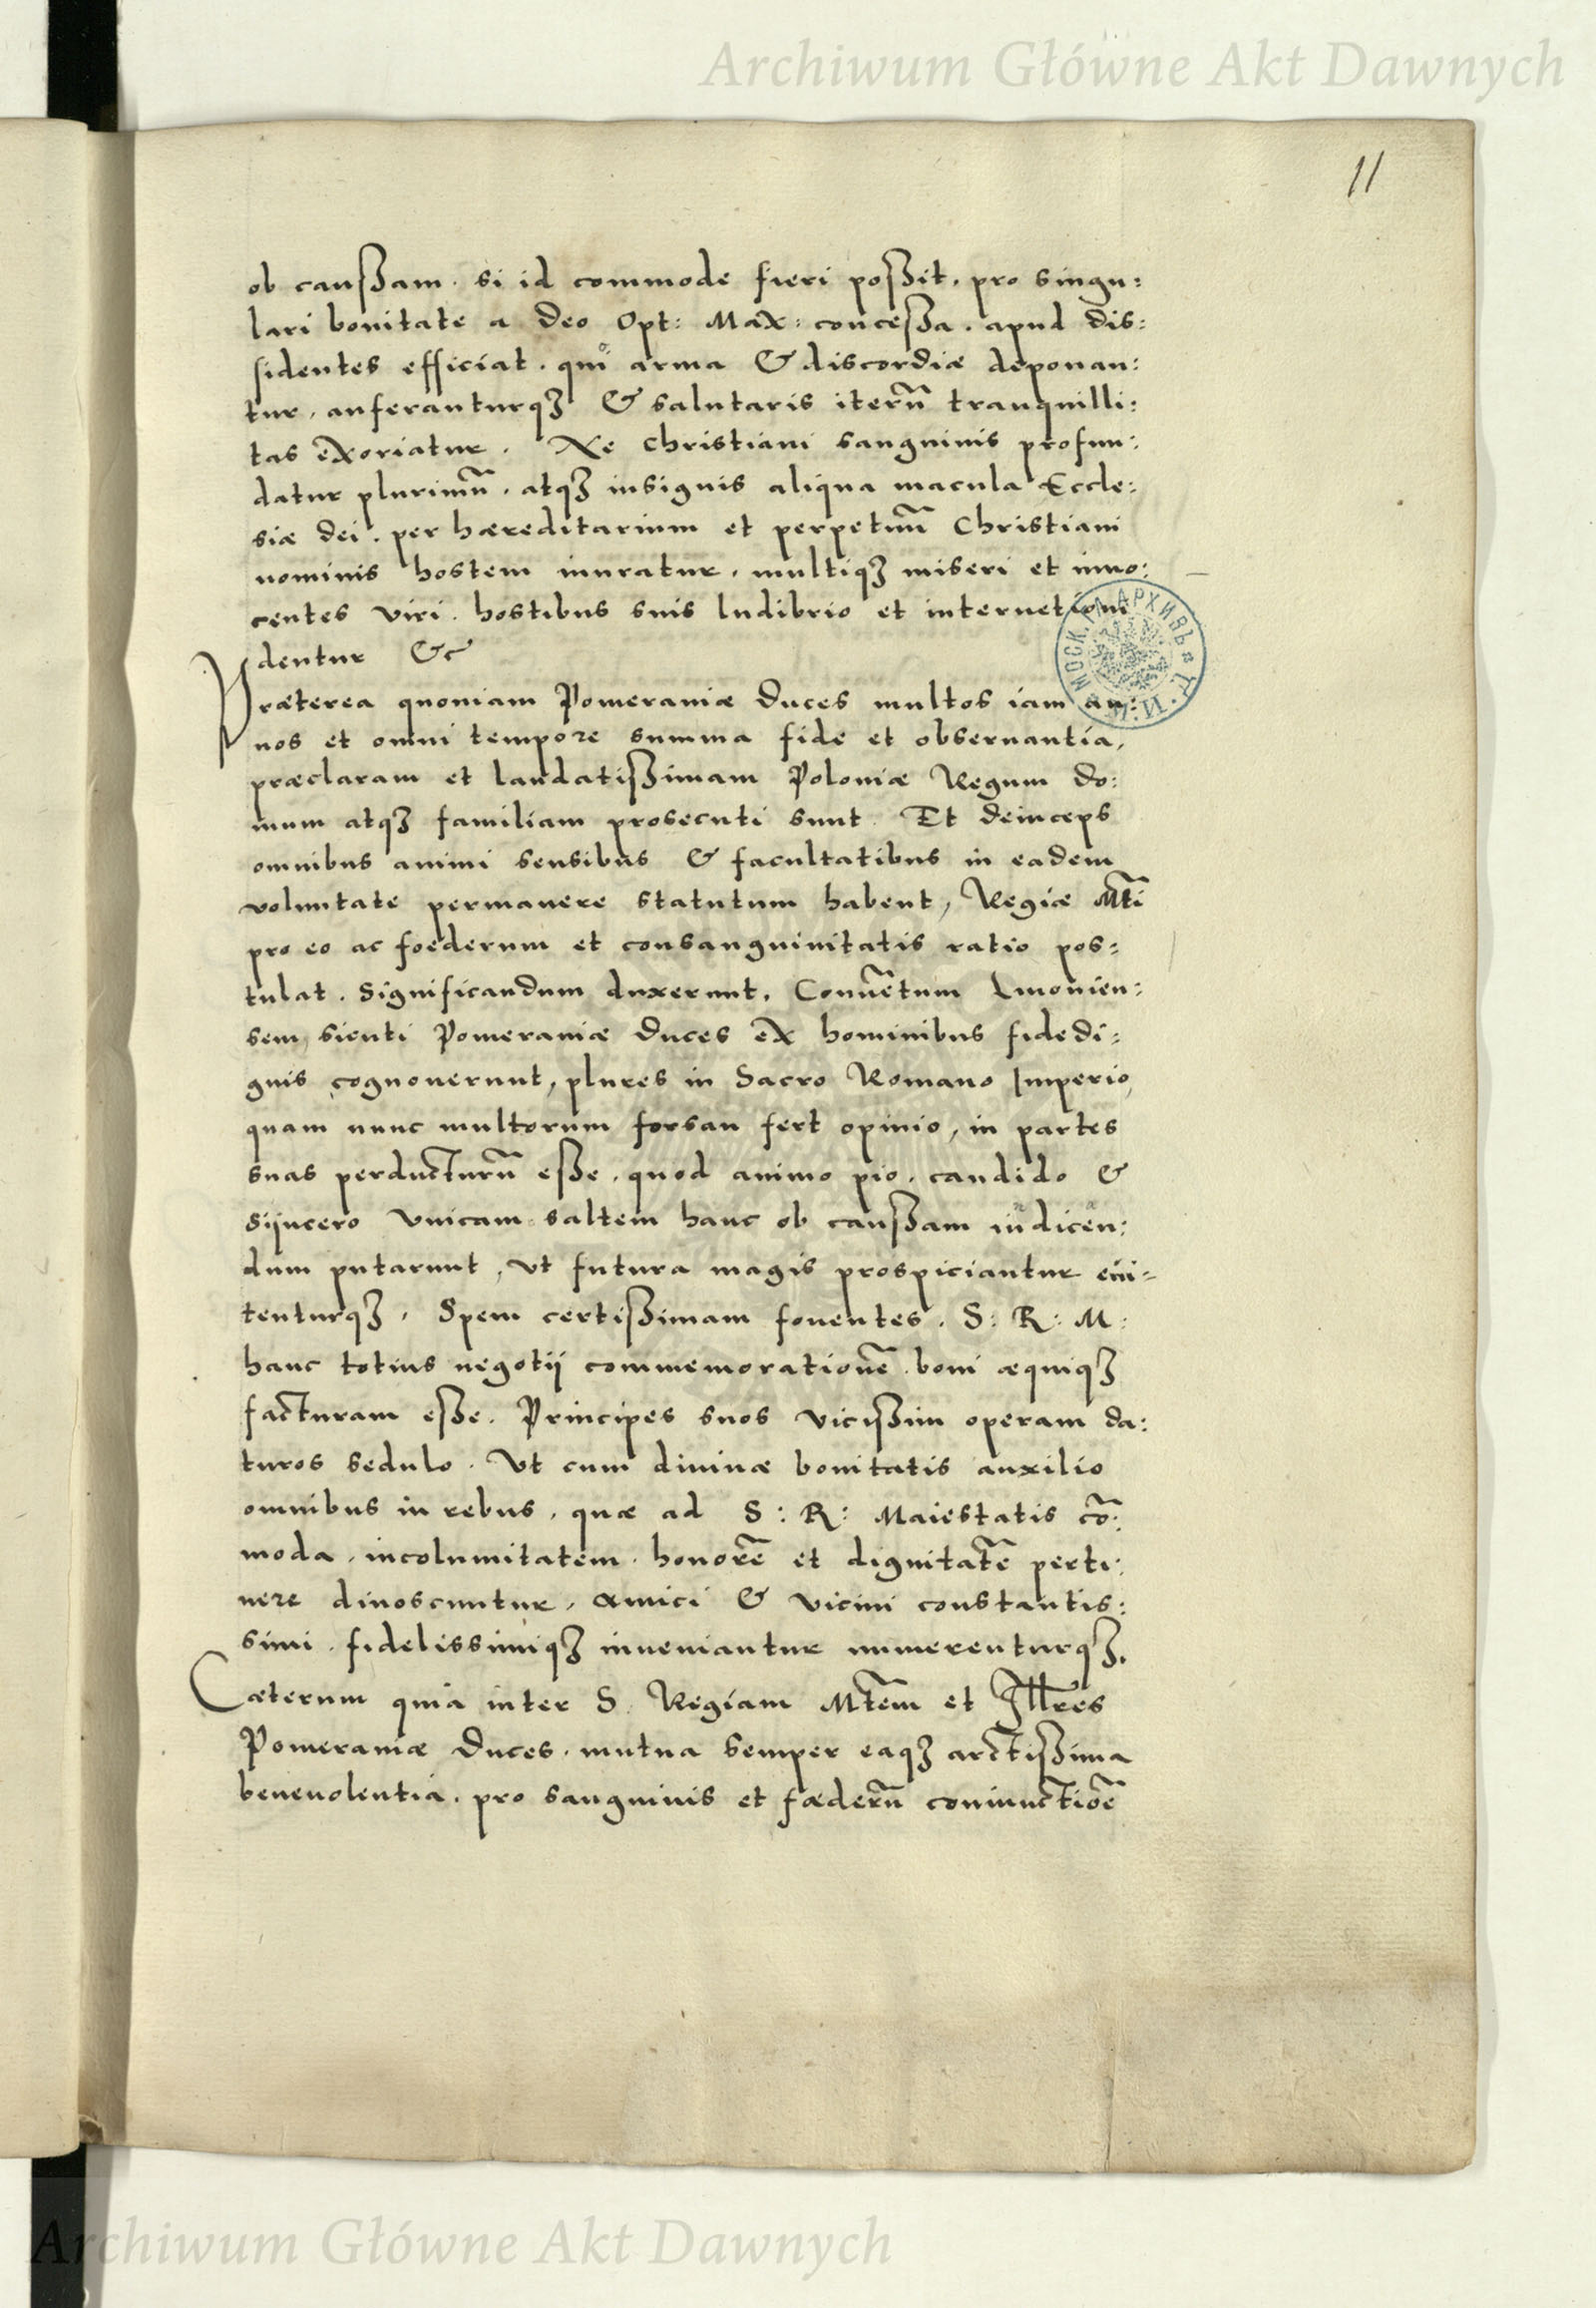 Archiwum Główne Akt Dawnych
11
ob caußam. si id commode fieri poßit. pro singu:
lari bonitate a Deo Opt: Max: conceßa. apud dis:
sidentes efficiat. quo arma & discordiæ deponan:
tur, auferanturqꝫ & salutaris iterũ tranquilli:
tas exoriatur. Ne Christiani sanguinis profun:
datur plurimũ, atqꝫ insignis aliqua macula Eccle:
siæ dei. per hæreditarium et perpetuũ Christiani
nominis hostem inuratur, multiqꝫ miseri et inno:
centes viri. hostibus suis ludibrio et internetioni
dentur &c
Præterea quoniam Pomeraniæ Duces multos iam an:
nos et omni tempore summa fide et obseruantia,
præclaram et laudatißimam Poloniæ Regum do:
mum atqꝫ familiam prosecuti sunt. Et deinceps
omnibus animi sensibus & facultatibus in eadem
voluntate permanere statutum habent, Regiæ Mti
pro eo ac foederum et consanguinitatis ratio pos:
tulat. Significandum duxerunt. Conuẽtum Liuonien:
sem, sicuti Pomeraniæ Duces ex hominibus fidedi:
gnis cognouerunt, plures in Sacro Romano Imperio,
quam nunc multorum forsan fert opinio, in partes
suas perducturũ eße, quod animo pio, candido &
sijncero vnicam saltem hanc ob caußam indicen:
dum putarunt, vt futura magis prospiciantur eui-
tenturqꝫ. Spem certißimam fouentes. S: R: M:
hanc totius negotij commemorationẽ boni æquiqꝫ
facturam eße. Principes suos vicißim operam da:
turos sedulo. Vt cum diuinæ bonitatis auxilio
omnibus in rebus, quæ ad S: R: Maiestatis cõ:
moda, incolumitatem, honorẽ et dignitatẽ perti:
nere dinoscuntur, amici & vicini constantis:
simi. fidelissimiqꝫ inueniantur numerenturqꝫ.
Cæterum quia inter S. Regiam Mtẽm et Illres
Pomeraniæ Duces. mutua semper eaqꝫ arctißima
beneuolentia. pro sanguinis et fæderũ coniunctiõe
МОСК. ГЛ. АРХИВЪ
Archiwum Główne Akt Dawnych